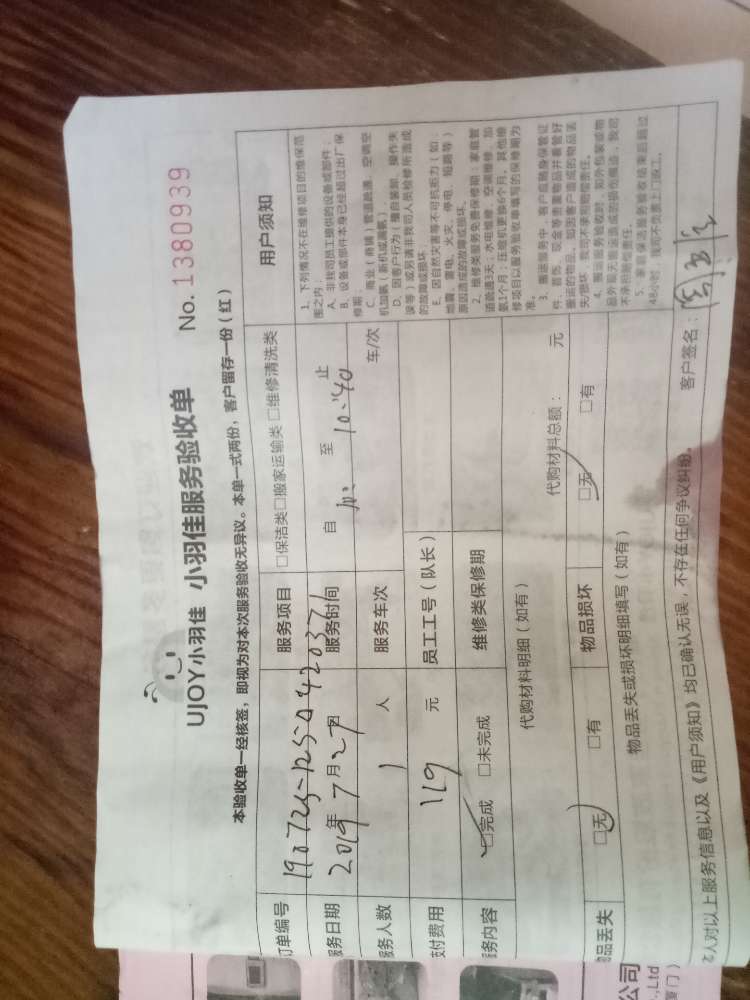 UJOY小羽佳 小羽佳服务验收单 No. 1380939
本验收单一经核签，即视为对本次服务验收无异议。本单一式两份，客户留存一份（红）
订单编号 190725-125-0420371 服务项目 □保洁类□搬家运输类 □维修清洗类
服务日期 2019年7月27日 服务时间 自 至 10:40 止
服务人数 1 人 服务车次 车/次
支付费用 119 元 员工工号（队长）
服务内容 □完成 □未完成 维修类保修期
代购材料明细（如有） 代购材料总额： 元
物品丢失 □无 □有 物品损坏 □无 □有
物品丢失或损坏明细填写（如有）
本人对以上服务信息以及《用户须知》均已确认无误，不存在任何争议纠纷。 客户签名：
用户须知
1、下列情况不在维修项目的维保范
围之内：
A、非我司员工提供的设备或部件；
B、设备或部件本身已经超过出厂保
修期；
C、商业（商铺）管道疏通、空调空
机加氟（新机或漏氟）
D、因客户行为（擅自装卸、操作失
误等）或另请非我司人员检修所造成
的故障或损坏。
E、因自然灾害等不可抗拒力（如：
地震、雷电、火灾、停电、短路等）
原因造成的故障或损坏。
2、维修类服务免费保修期：家庭管
道疏通3天；水电维修、空调维修、加
氨1个月；压缩机更换6个月，其他维
修项目以服务验收单填写的保修期为
准。
3、搬运服务中，客户应随身保管证
件、首饰、现金等贵重物品并看管好
搬运的物品，如因客户造成的物品丢
失/损坏，我司不承担赔偿责任。
4、搬运服务验收时，如外包装或物
品外观无搬运造成的损伤痕迹，我司
不承担赔偿责任。
5、家庭保洁服务验收结束后超过
48小时，我司不负责上门返工。
公司
,Ltd